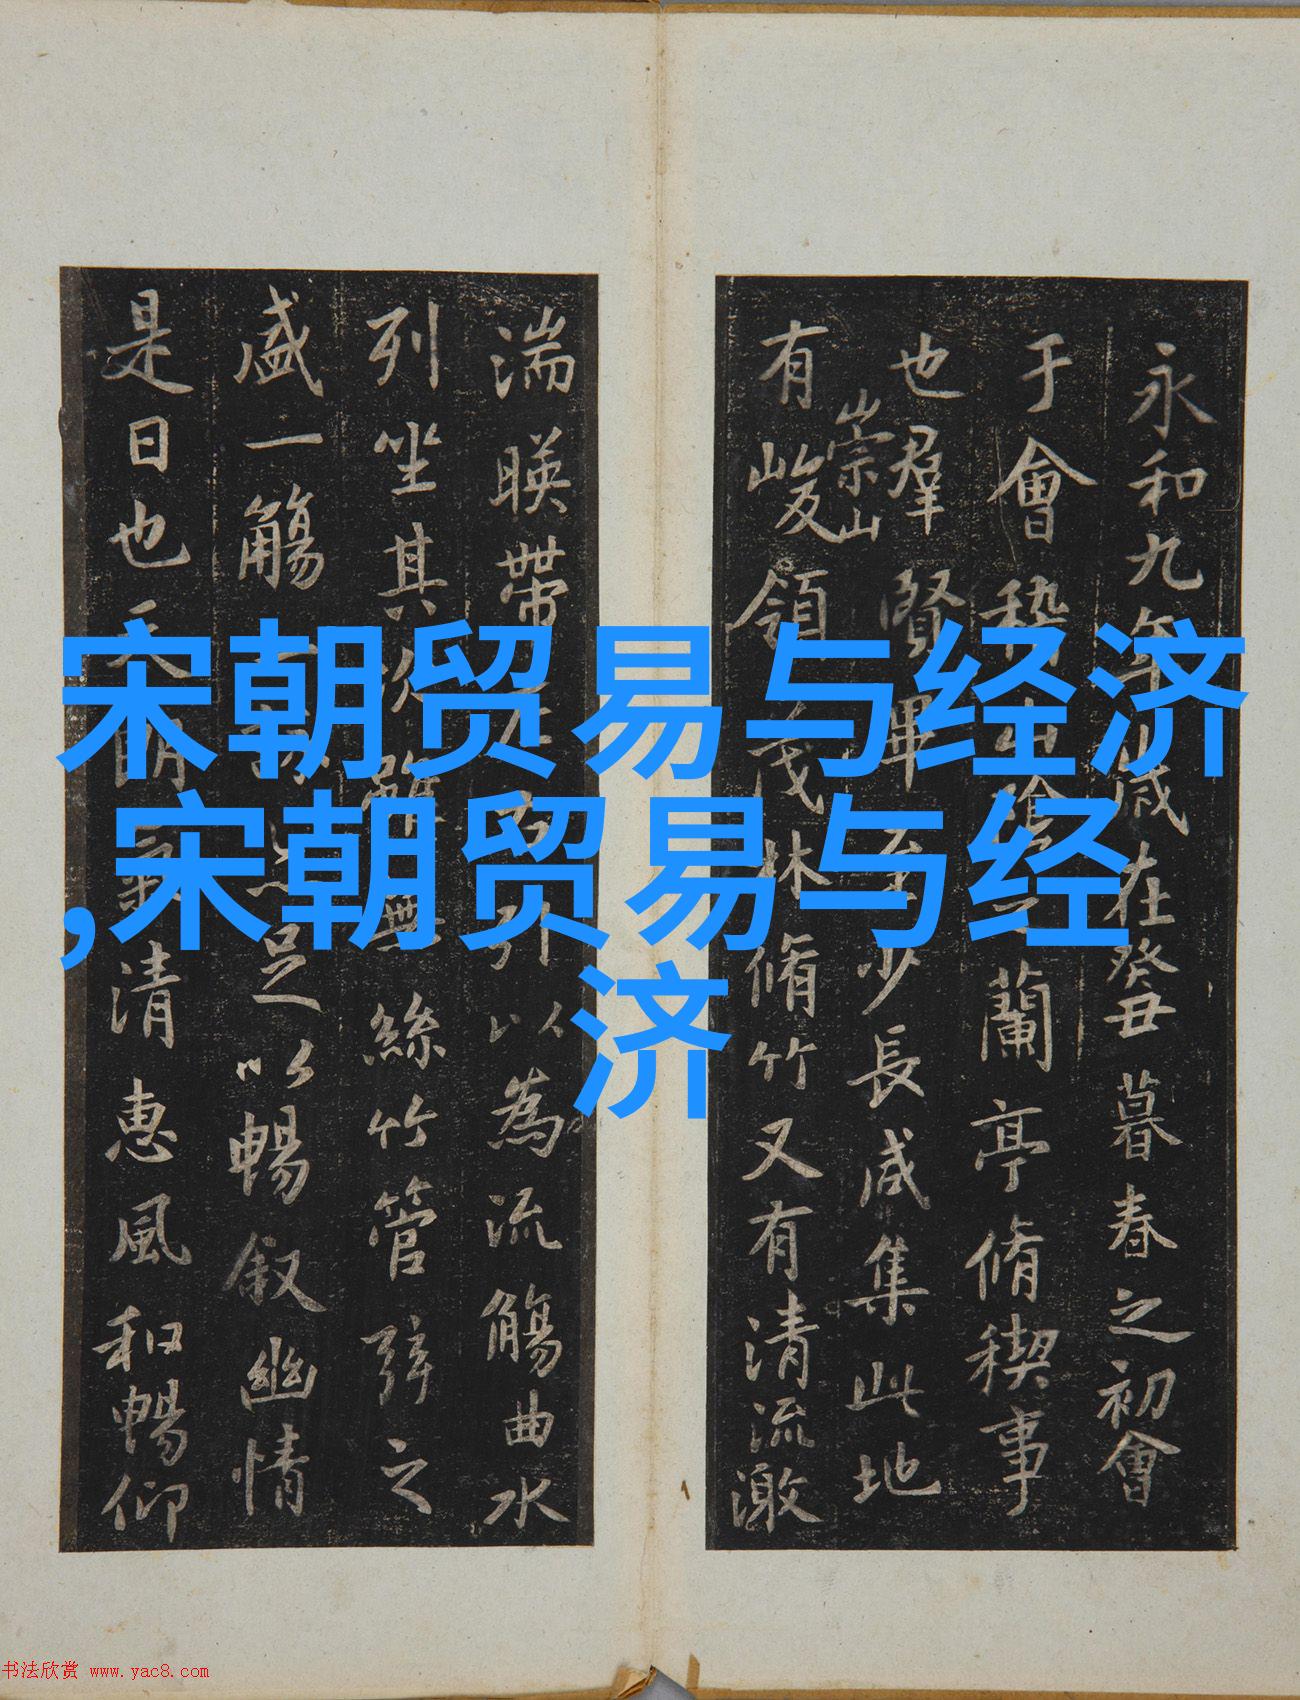 宋朝贸易与经济
,宋朝贸易与经
济
永和九年歲在癸丑暮春之初會
于會稽山陰之蘭亭脩稧事
也羣賢畢至少長咸集此地
有崇山峻領茂林脩竹又有清流激
湍暎帶左右引以為流觴曲水
列坐其次雖無絲竹管弦之
盛一觴一詠亦足以暢叙幽情
是日也天朗氣清惠風和暢仰
书法欣赏 www.yac8.com